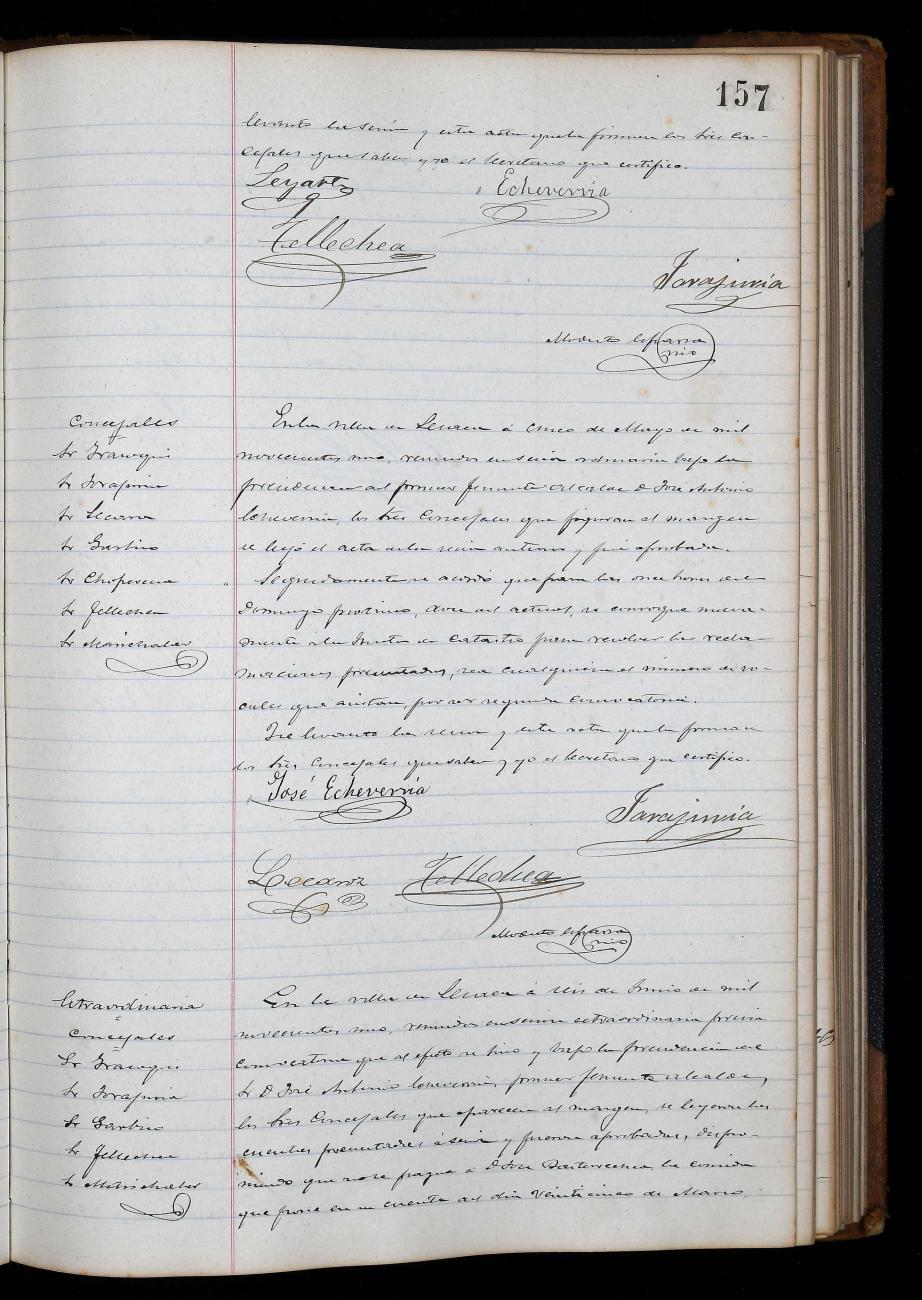 157
levantó la sesión y esta acta que la firman los Sres Con-
cejales que saben y yo el Secretario que certifico.
Echeverria
Tellechea
Jarajuria
Modesto
Concejales
En la villa de Lesaca á cinco de Mayo de mil
Sr
novecientos uno, reunidos en sesión ordinaria bajo la
Sr Jarajuria
presidencia del primer Teniente Alcalde D José Antonio
Sr
Echeverria, los Sres Concejales que figuran al margen
Sr
se leyó el acta de la sesión anterior y fué aprobada.
Sr Choperena
Seguidamente se acordó que para las once horas del
Sr Tellechea
Domingo próximo, doce del actual, se convoque nueva-
Sr Marichalar
mente á la Junta de Catastro para resolver las recla-
maciones presentadas, sea cualquiera el número de vo-
cales que asistan, por ser segunda convocatoria.
Se levantó la sesión y esta acta que la firman
los Sres Concejales que saben y yo el Secretario que certifico.
José Echeverria
Jarajuria
Tellechea
Modesto
Extraordinaria
En la villa de Lesaca á seis de Junio de mil
Concejales
novecientos uno, reunidos en sesión extraordinaria previa
Sr
convocatoria que al efecto se hizo y bajo la presidencia del
Sr Jarajuria
Sr D José Antonio Echeverria, primer Teniente Alcalde,
Sr
los Sres Concejales que aparecen al margen, se leyeron las
Sr Tellechea
cuentas presentadas á sesión y fueron aprobadas, dispo-
Sr Marichalar
niendo que no se pague á D José la comida
que pone en su cuenta del dia veinticinco de Marzo,